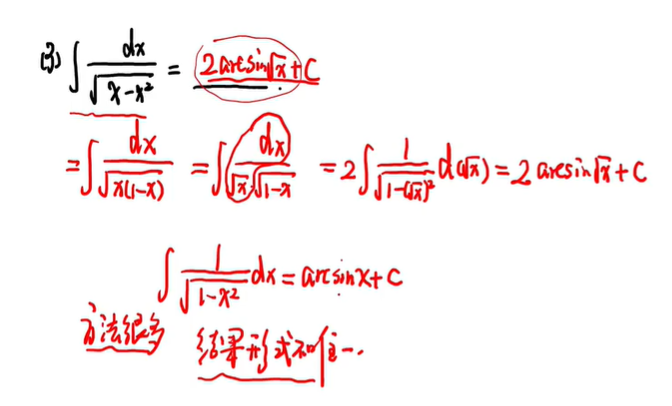 (3) ∫ dx/√(x-x²) = 2arcsin√x+C
= ∫ dx/√(x(1-x)) = ∫ dx/(√x√(1-x)) = 2∫ 1/√(1-(√x)²) d(√x) = 2arcsin√x+C
∫ 1/√(1-x²) dx = arcsinx+C
方法很多 结果形式不唯一.